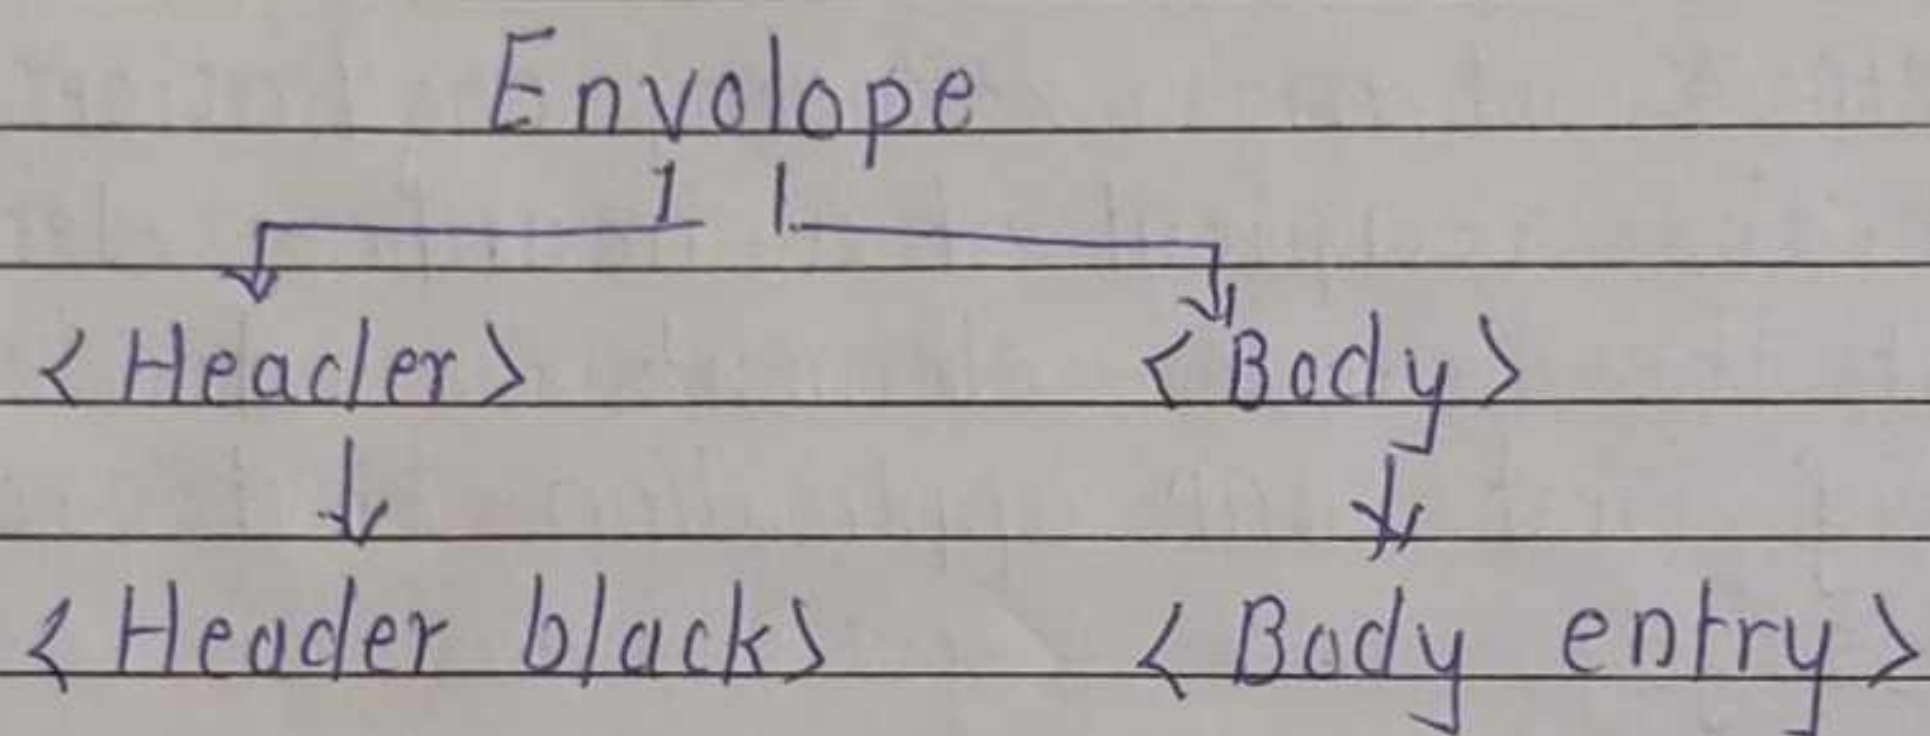 Envolope
1 1
<Header> <Body>
<Header black> <Body entry>